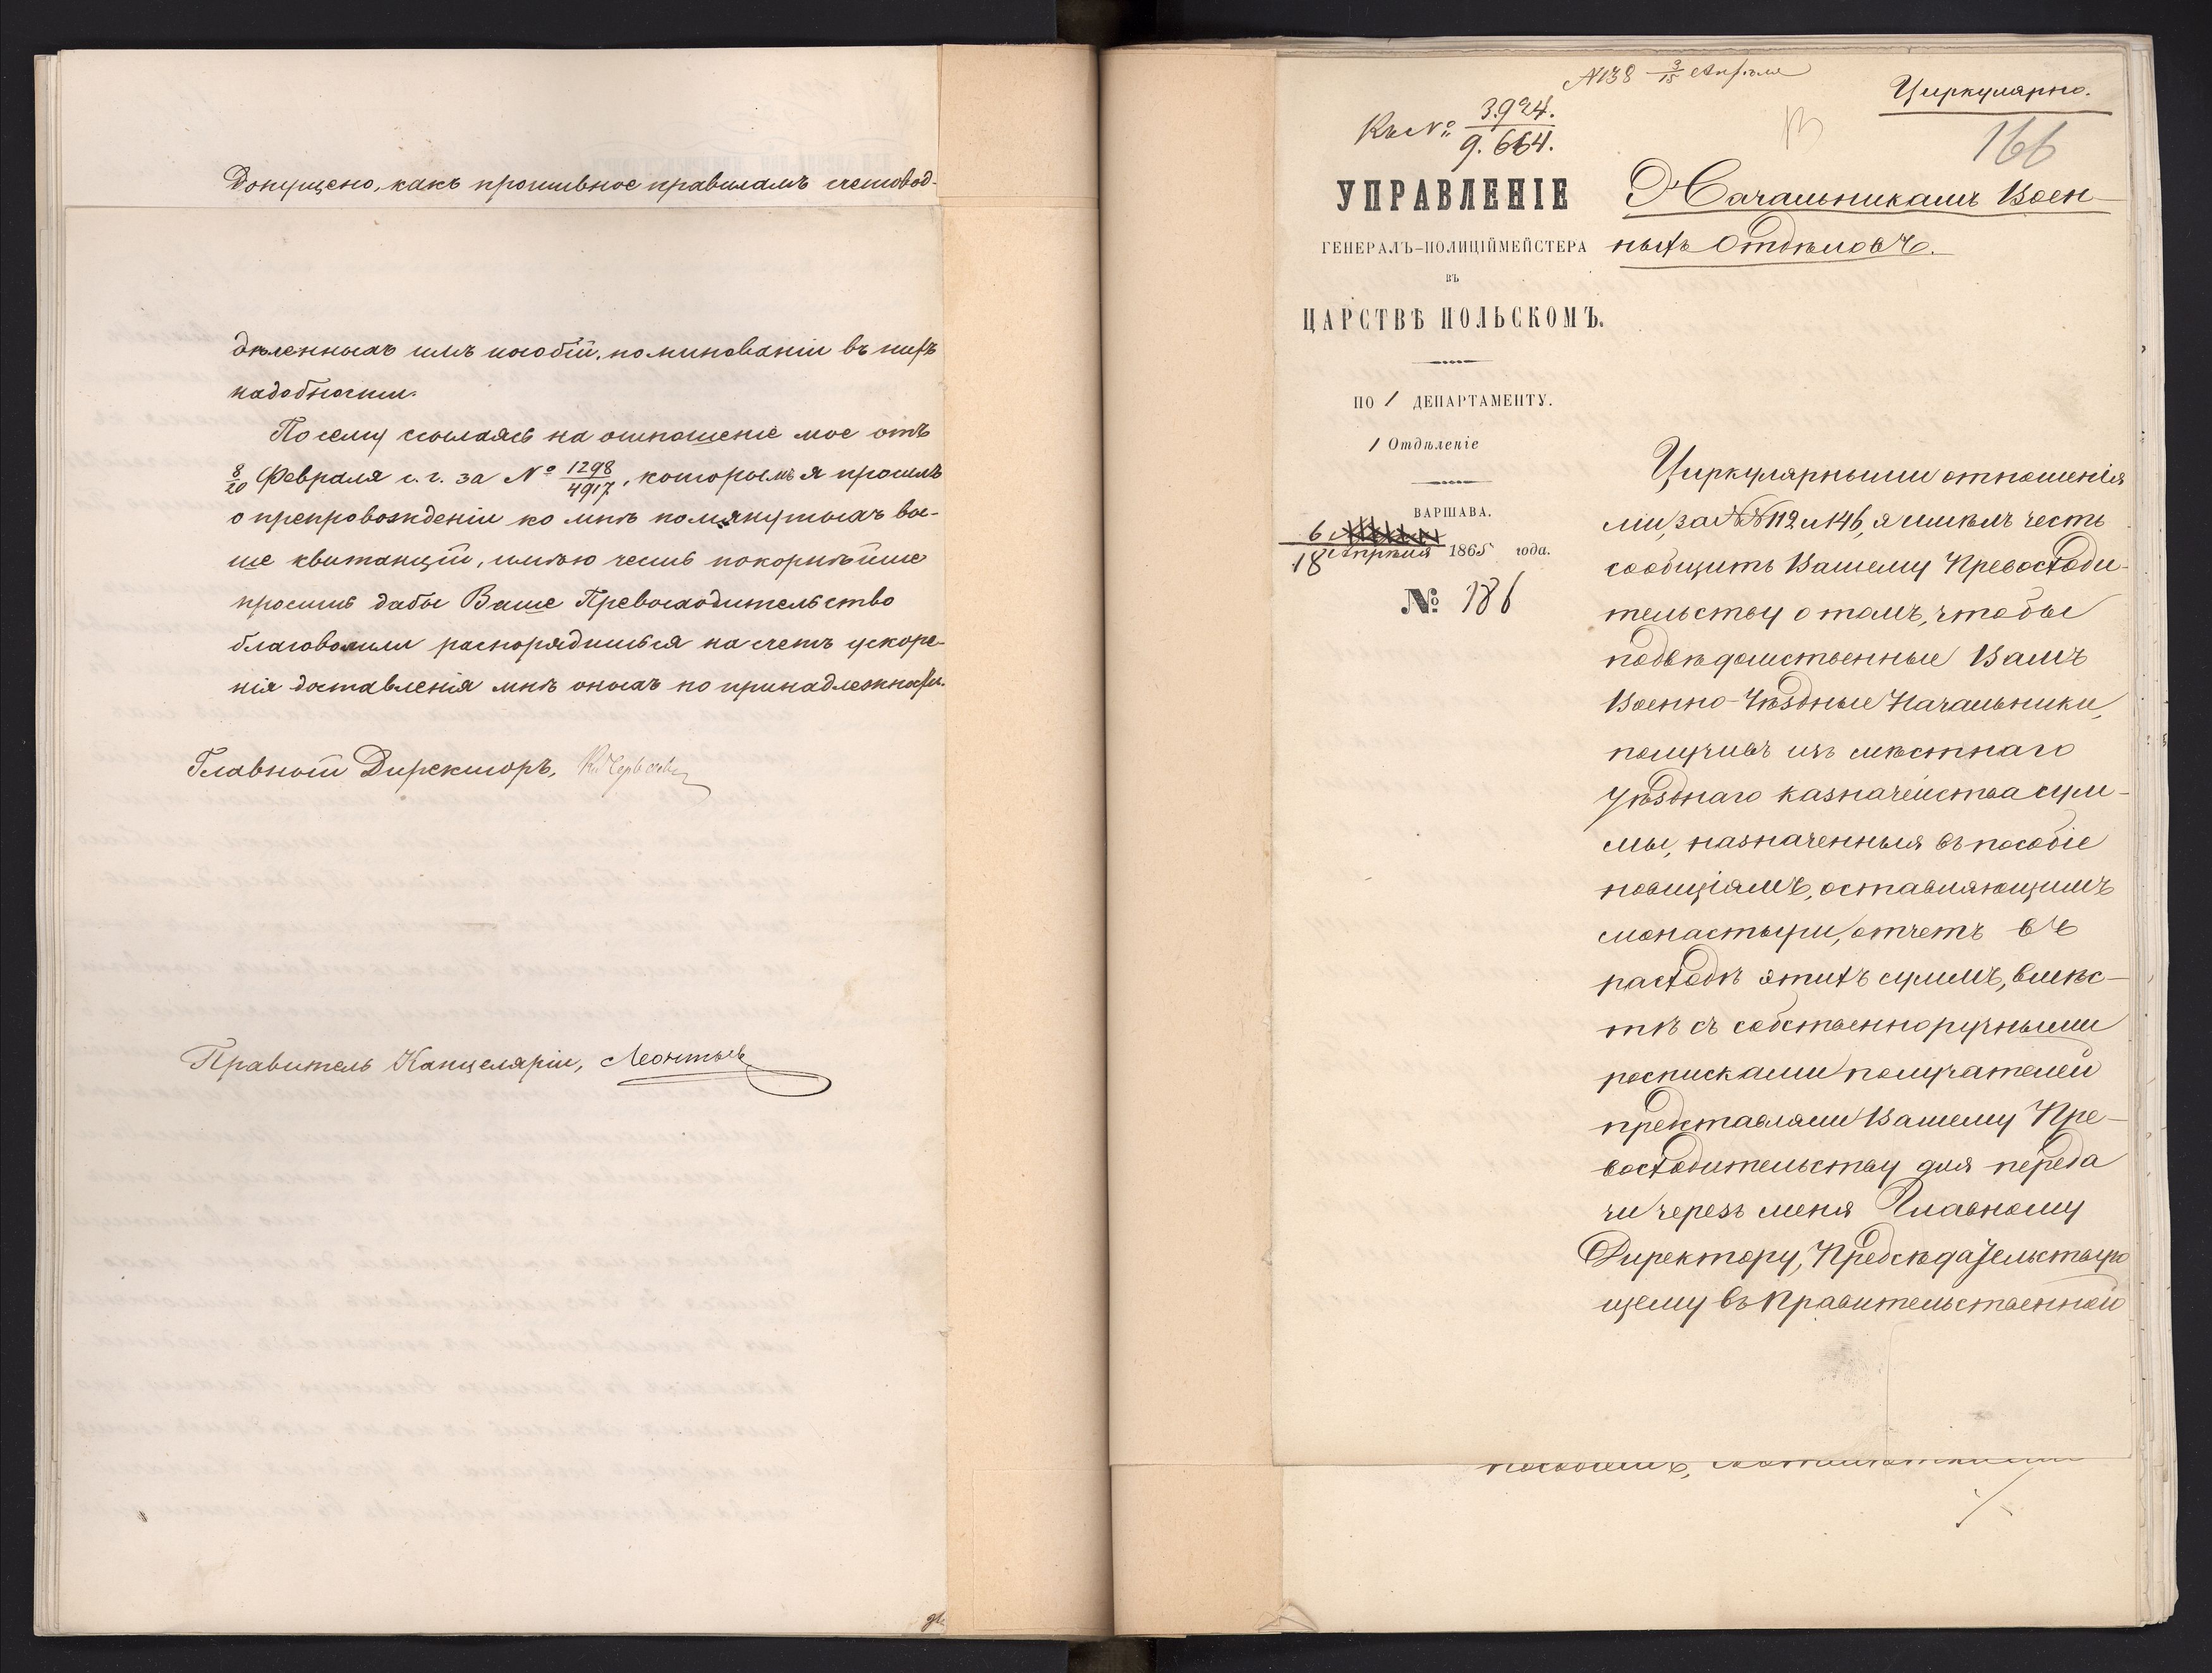 допущено, какъ противное правиламъ счетовод-
дѣленныхъ имъ пособій, по минованіи въ нихъ
надобности.
По сему ссылаясь на отношеніе мое отъ
8/20 Февраля с. г. за № 1298/4917, которымъ я просилъ
о препровожденіи ко мнѣ помянутыхъ вы-
ше квитанцій, имѣю честь покорнѣйше
просить дабы Ваше Превосходительство
благоволили распорядиться на счетъ ускоре-
нія доставленія мнѣ оныхъ по принадлежности.
Главный Директоръ,
Правитель Канцеляріи, Леонтьев
№138 3/15 Апрѣля
Циркулярно.
Къ № 3.924./9.664.
166
УПРАВЛЕНІЕ
ГЕНЕРАЛЪ-ПОЛИЦІЙМЕЙСТЕРА
ВЪ
ЦАРСТВѢ ПОЛЬСКОМЪ.
ПО 1 ДЕПАРТАМЕНТУ.
1 Отдѣленіе
ВАРШАВА.
6/18 Апрѣля 1865 года.
№ 186
Начальникамъ Воен-
ныхъ Отдѣловъ.
Циркулярными отношенія
ми, за №№ 112 и 146, я имѣлъ честь
сообщить Вашему Превосходи-
тельству о томъ, чтобы
подвѣдомственные Вамъ
Военно-Уѣздные Начальники,
получивъ изъ мѣстнаго
Уѣзднаго казначейства сум-
мы, назначенныя въ пособіе
новиціямъ, оставляющимъ
монастыри, отчетъ въ
расходѣ этихъ суммъ, вмѣс-
тѣ съ собственноручными
росписками получателей
представляли Вашему Пре-
восходительству для переда
чи черезъ меня Главному
Директору, Предсѣдательствую
щему въ Правительственной
пособіемъ,